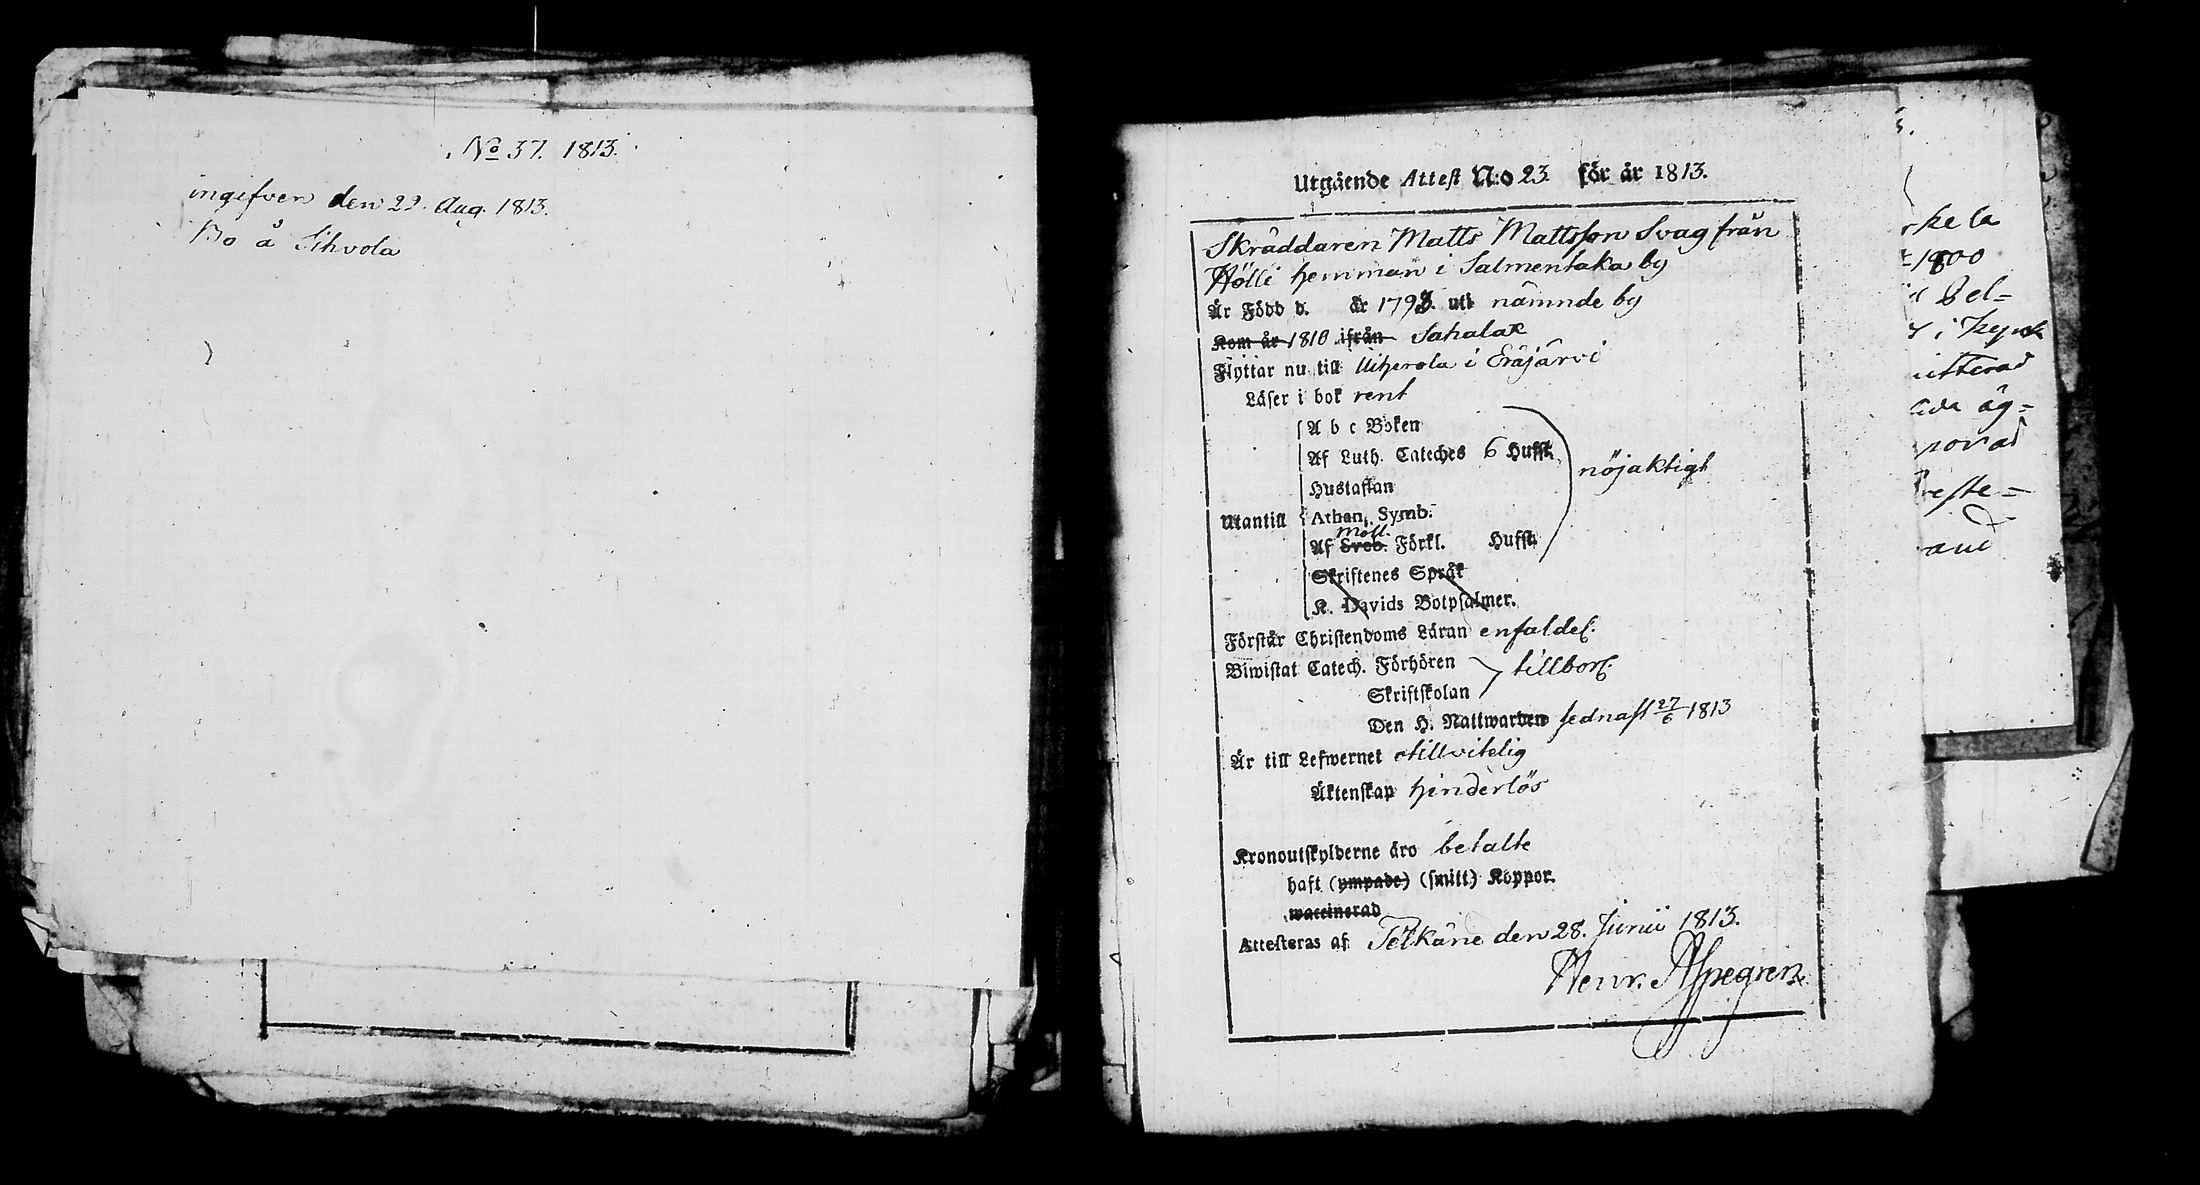 No 37. 1813.
ingifven den 22. Aug. 1813.
Bo å Sihvola
Utgående Attest N:o 23 för år 1813.
Skräddaren Matts Mattsson Svag från
Hölli hemman i Salmentaka by
Är Född d. år 1793. uti nämnde by
Kom år 1810 ifrån Sahalax
Flyttar nu till Uiherola i Eräjärvi
Läser i bok rent
A b c Boken
Af Luth. Cateches 6 Hufst.
nöjaktigt
Hustaflan
Utantill
Athan. Symb.
Moll.
Af Sveb. Förkl. Hufst.
Skriftenes Språk
K. Davids Botpsalmer.
Förstår Christendoms Läran enfaldel.
Biwistat Catech. Förhören
tillbörl.
Skriftskolan
Den H. Nattwarden sednast 27/6 1813
Är till Lefwernet otillvitelig
Äktenskap hinderlös
Kronoutskylderne äro betalte
haft (ympade) (smitt) Koppor.
waccinerad
Attesteras af Pelkäne den 28. Junii 1813.
Henr. Aspegren
kela
1800
Bel=
äg=